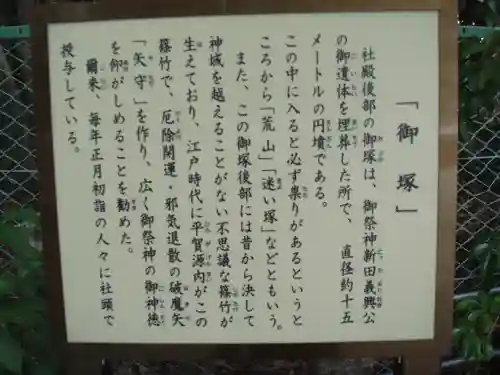 「御塚」
社殿後部の御塚は、御祭神新田義興公
の御遺体を埋葬した所で、直径約十五
メートルの円墳である。
この中に入ると必ず祟りがあるというと
ころから「荒山」「迷い塚」などともいう。
また、この御塚後部には昔から決して
神域を越えることがない不思議な篠竹が
生えており、江戸時代に平賀源内がこの
篠竹で、厄除開運・邪気退散の破魔矢
「矢守」を作り、広く御祭神の御神徳
を仰がしめることを勧めた。
爾来、毎年正月初詣の人々に社頭で
授与している。